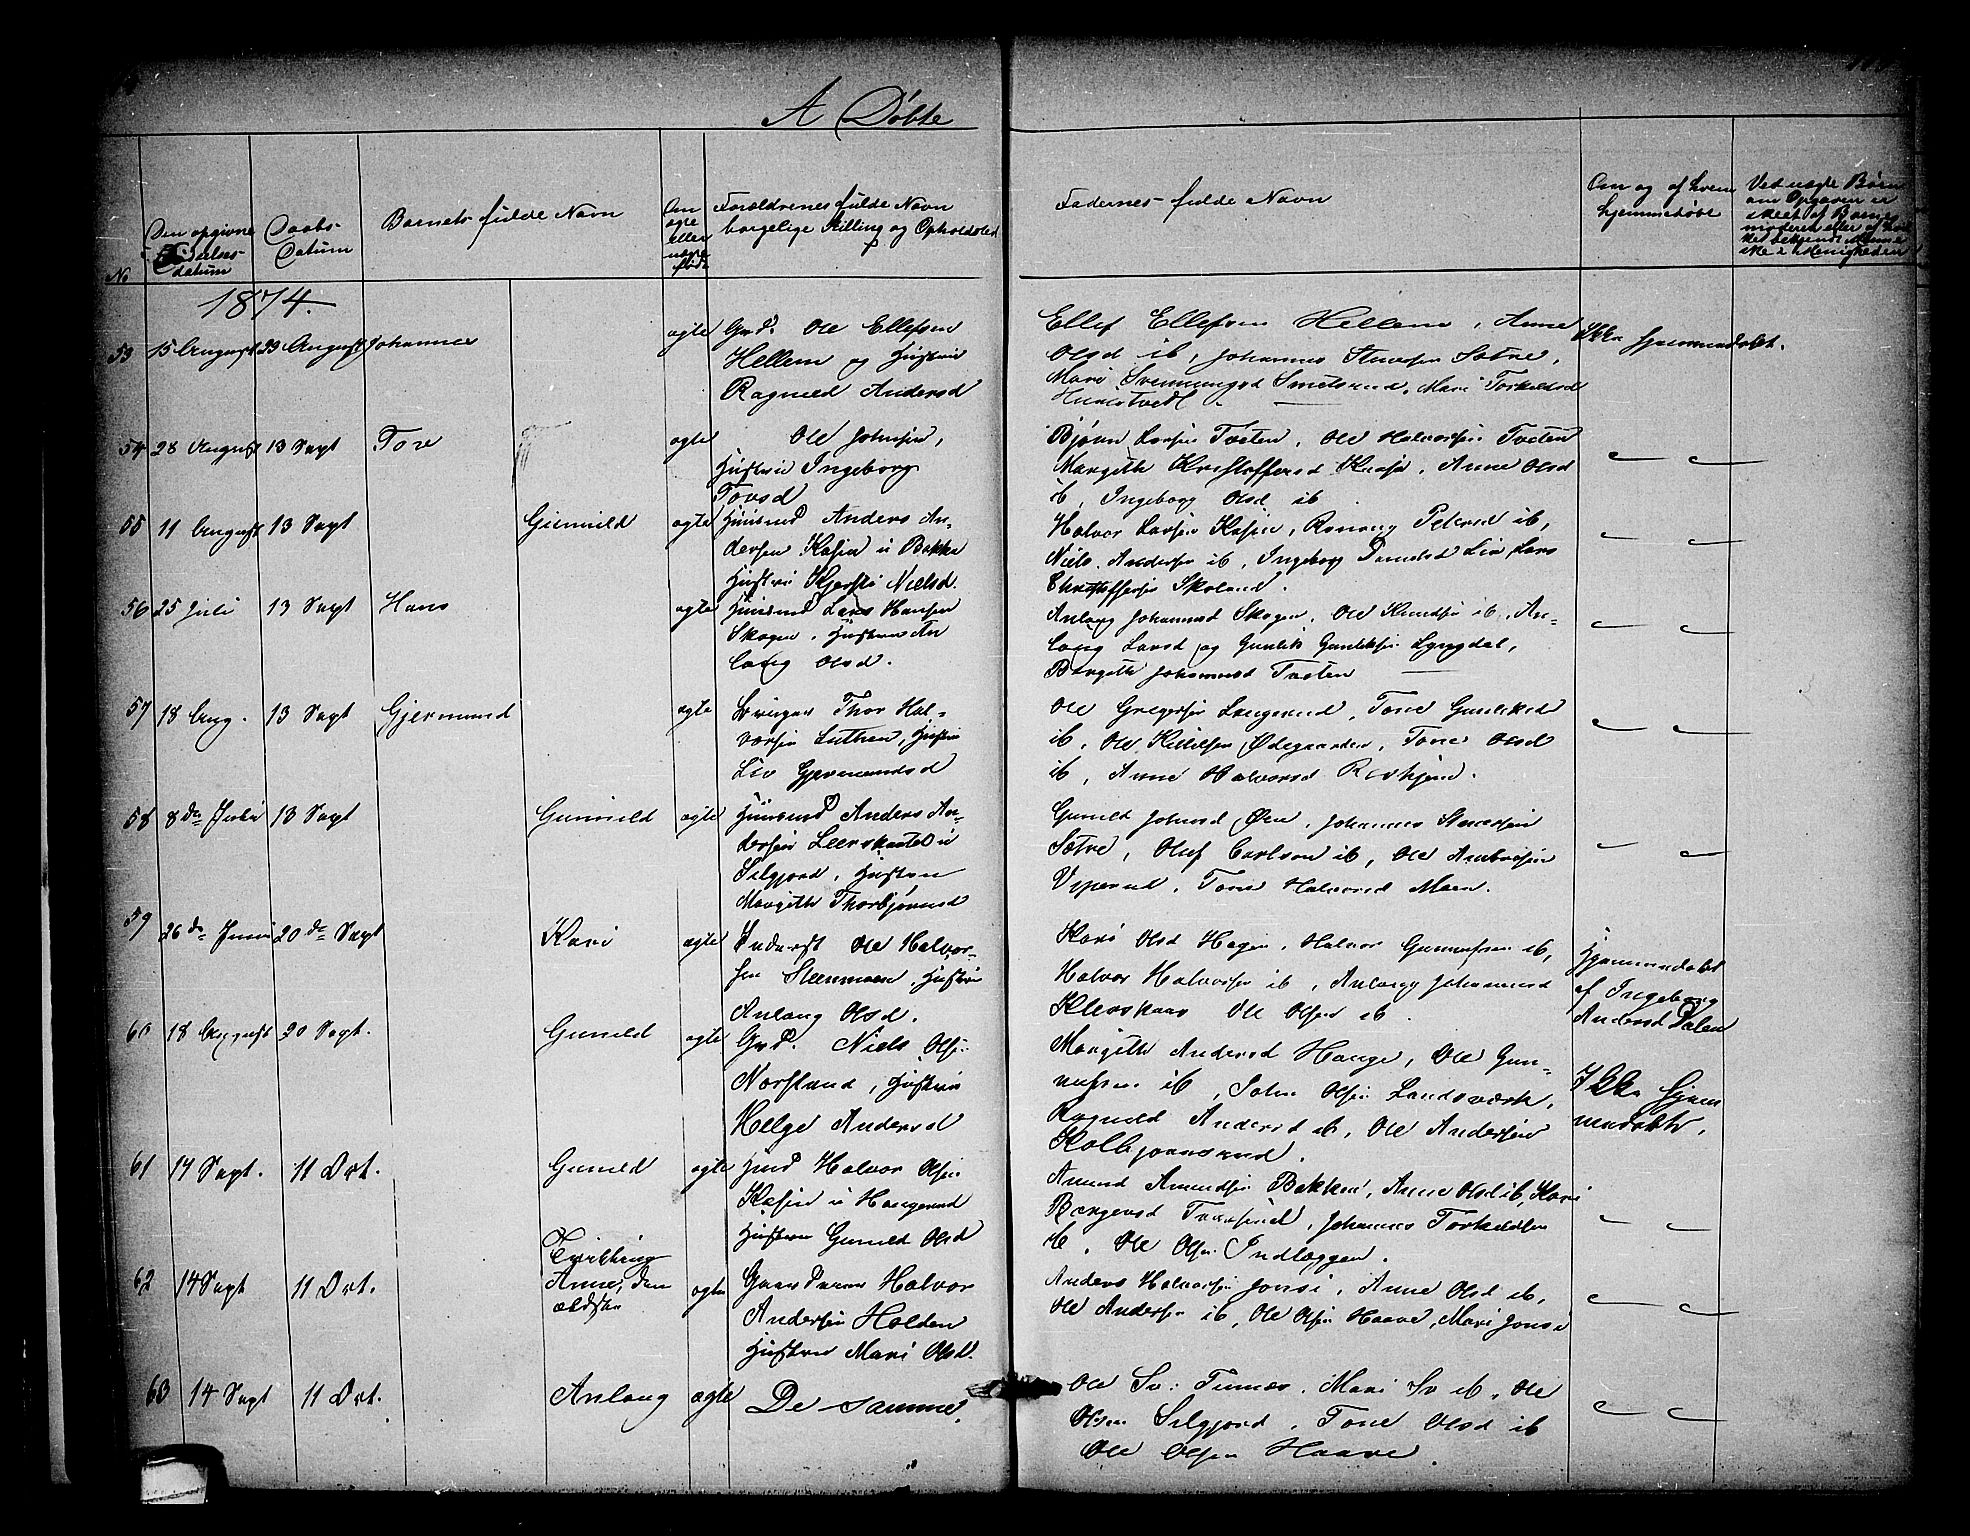 A Døbte
No
Den opgivne Fødselsdatum
Daabs-Datum
Barnets fulde Navn
Om ægte eller uægte født
Forældrenes fulde Navn borgelige Stilling og Opholdsted
Fadernes fulde Navn
Om og af hvem hjemmedøbt
Ved uægte Børn om Opgaven er skeet af Barnemoderen eller af
1874.
53 15 August 23 August Johannes ægte Grd. Ole Ellefsen
Hellem og Hustru
Ragnild Andersd
Ellef Ellefsen Hellem, Anne
Olsd ib, Johannes Steensen Sætre,
Mari Svennungsd, Mari Torkildsd
Ikke hjemmedøbt.
54 28 August 13 Sept Tore ægte Ole Johnsen,
Hustru Ingeborg
Tovsd
Bjørn Larsen Tveten, Ole Halvorsen Tveten
Margith Kristoffersd, Anne Olsd
ib, Ingeborg Olsd ib
55 11 August 13 Sept Gunild ægte Huusmd Anders An-
dersen Kasin u Bakke
Hustru Kjersti Nielsd.
Halvor Larsen Kasin, Petersd ib,
Niels Andersen ib, Ingeborg Liv Lars
Skoland.
56 25 Juli 13 Sept Hans ægte Huusmd Lars Hansen
Skogen, Hustru An
laug Olsd.
Anlaug Johannesd Skogen, Ole Knudsen ib, An-
laug Larsd og Gunlik Gunliksen Lyngdal,
Bergith Johannesd Tveten
57 18 Aug. 13 Sept Gjermund ægte Thor Hal-
vorsen Luthen, Hustru
Liv Gjermundsd
Ole Gregersen Langerud, Tone Gunliksd
ib, Ole Kittilsen Ødegaarden, Tone Olsd
ib, Anne Halvorsd
58 8de Juli 13 Sept Gunild ægte Huusmd Anders An-
dersen u
Selgjord, Hustru
Margith Thorbjørnsd
Gunild Johnsd Øen, Johannes Steensen
Sætre, Oluf Carlsen ib, Ole
Tone Halvorsd Moen.
59 26de Juni 20de Sept Kari ægte Inderst Ole Halvor-
sen Steenmoen, Hustru
Anlaug Olsd.
Kari Olsd Hagen, Halvor Gunnufsen ib,
Halvor Halvorsen ib, Anlaug Johannesd
Ole Olsen ib.
Hjemmedøbt
af Ingeborg
Andersd Dalen
60 18 August 20 Sept. Gunild ægte Grd. Niels Olsen
Norstand, Hustru
Helge Andersd
Margith Andersd Hauge, Ole Gun-
nufsen ib, John Olsen Landsværk,
Ragnild Andersd ib, Ole Andersen
Kolbjørnsrud.
Ikke hjem
medøbt,
61 14 Sept. 11 Oct. Gunild ægte Hmd Halvor Olsen
Kasin u Haugerud
Hustru Gunild Olsd
Amund Amundsen Bakken, Anne Olsd ib, Kari
Børgersd, Johannes Torkildsen
ib, Ole Olsen Indlæggen.
62 14 Sept 11 Oct. Tvilling
Anne, den
ældste ægte Gaardmand Halvor
Andersen Holden
Hustru Mari Olsd.
Anders Halvorsen Jonsi, Anne Olsd ib,
Ole Andersen ib, Ole Olsen Haave, Mari Jonsi
63 14 Sept 11 Oct. Anlaug ægte De samme.
Ole Sv: Mari Sv ib, Ole
Olsen Selgjord, Tone Olsd ib
Ole Olsen Haave.